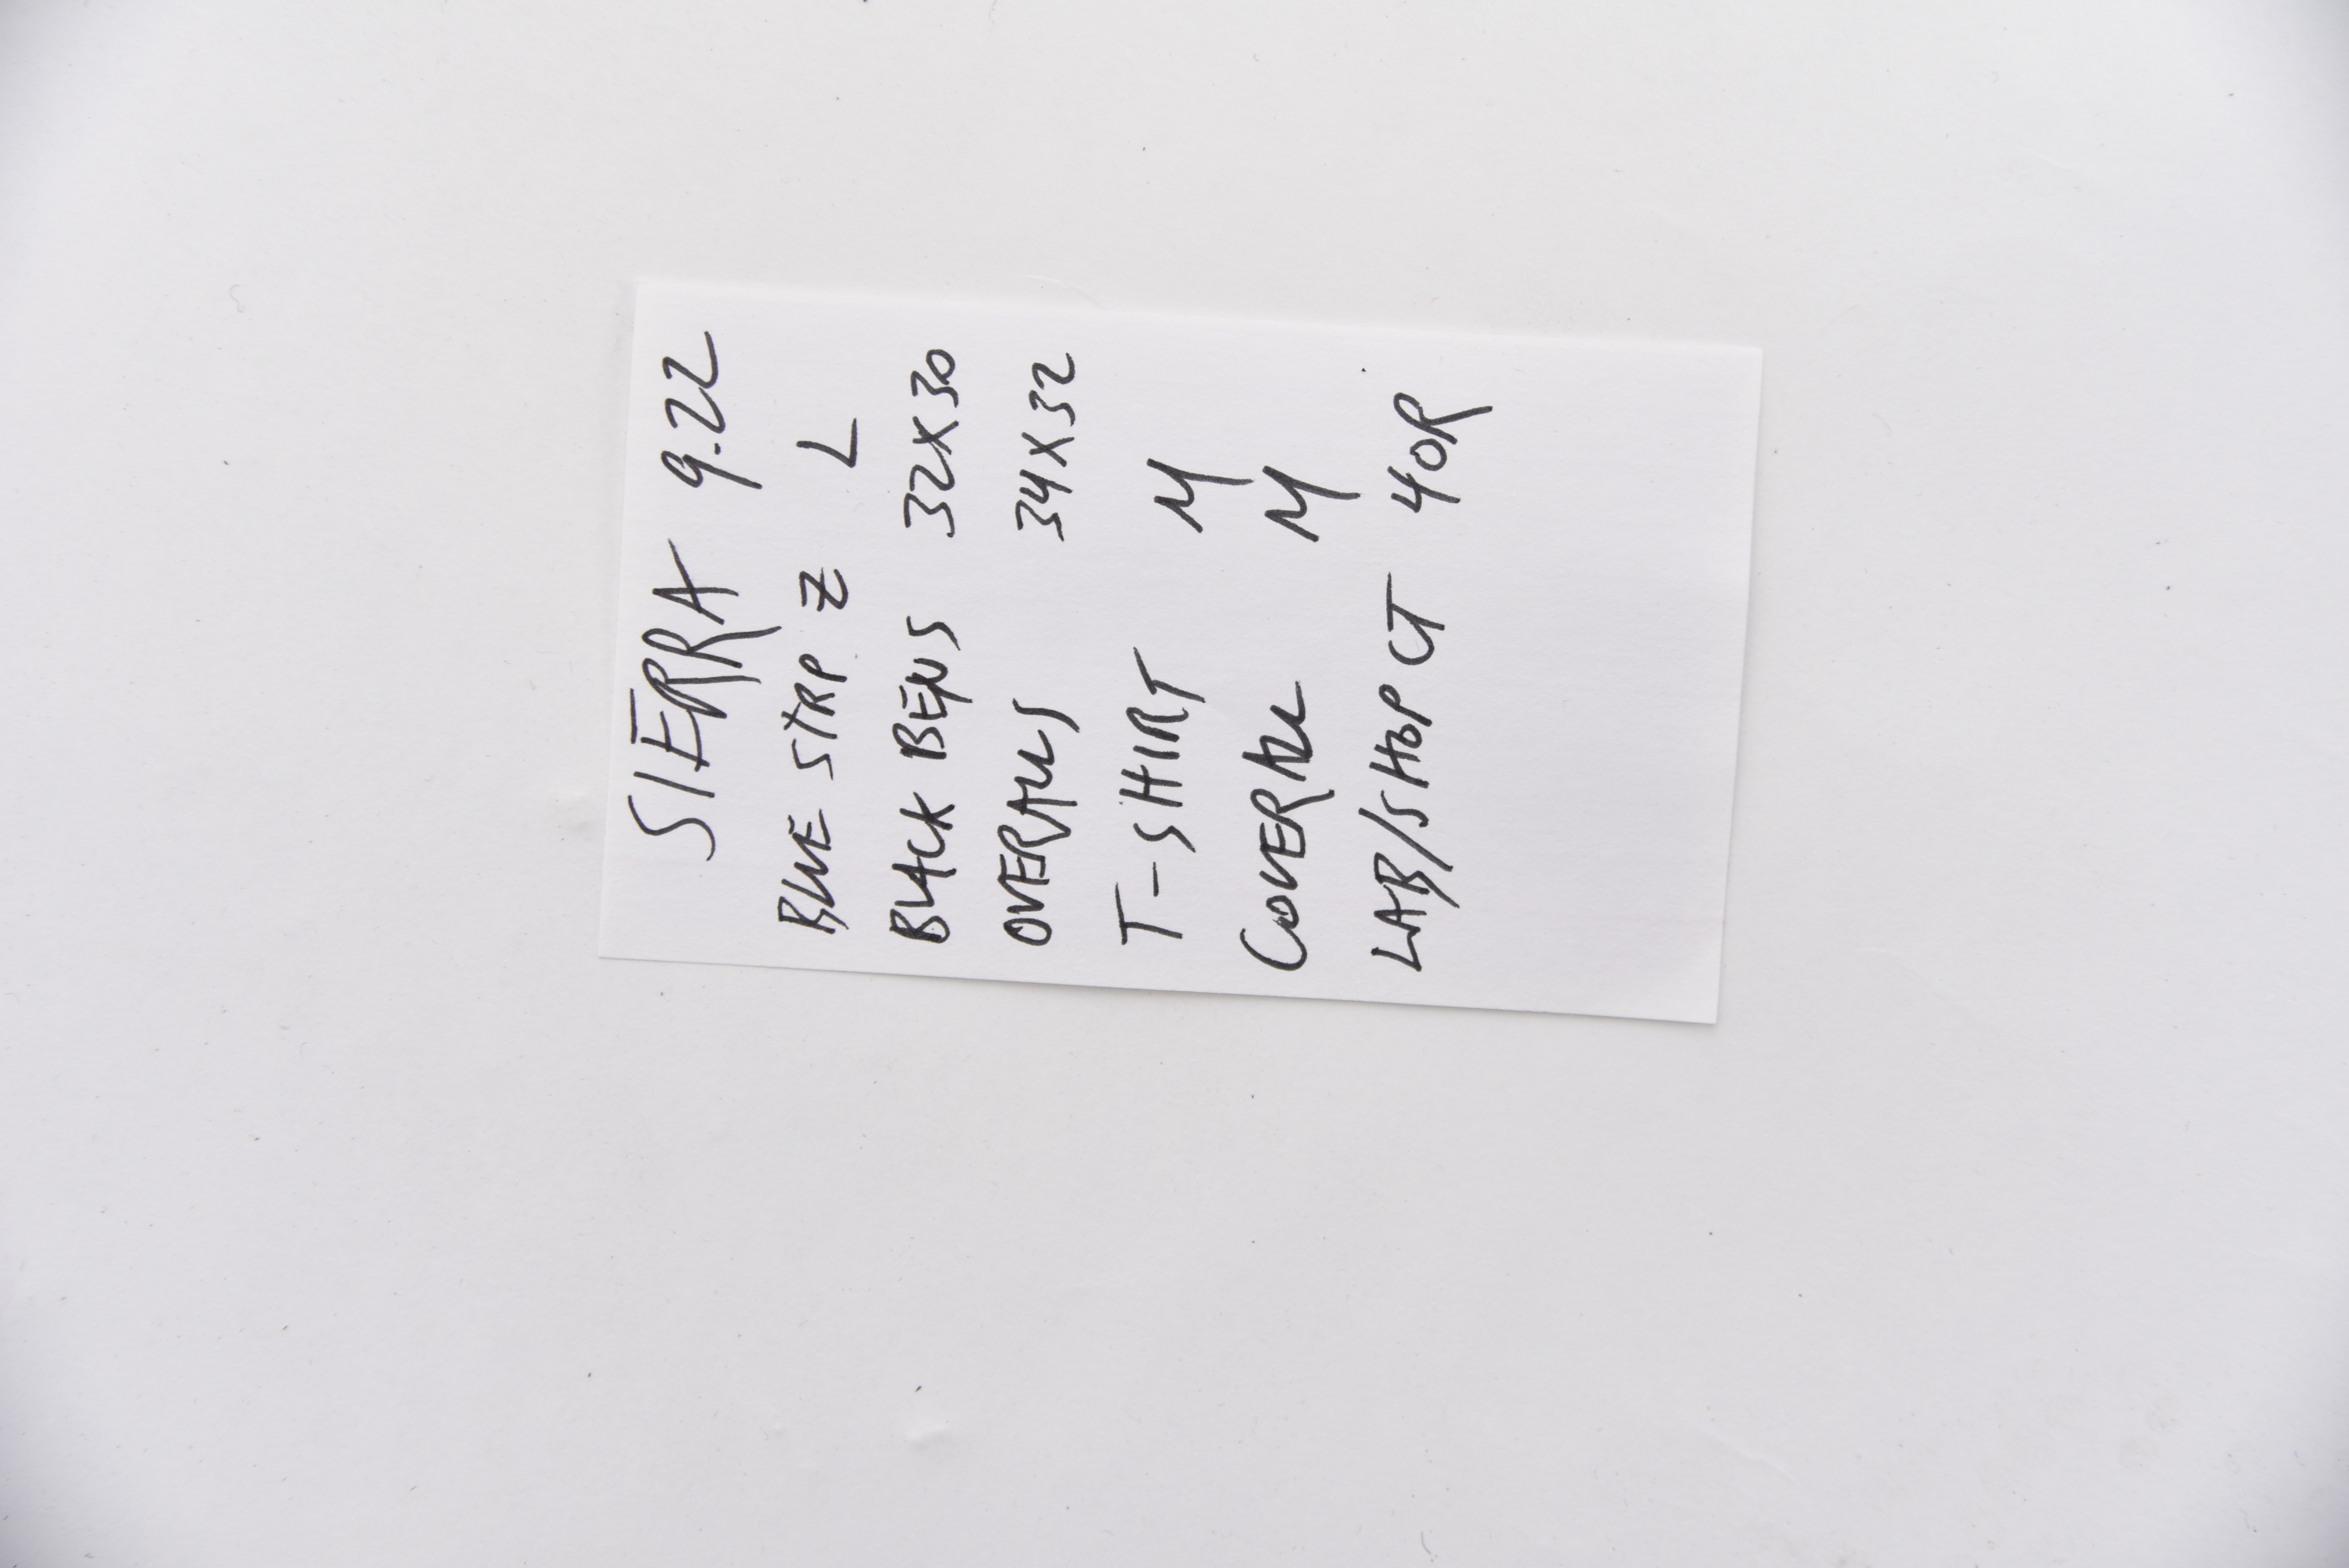 SIERRA 9.22
BLUE STRP Z L
BLACK BENS 32X30
OVERALLS 34X32
T-SHIRT M
COVERALL M
LAB/SHOP CT 40R